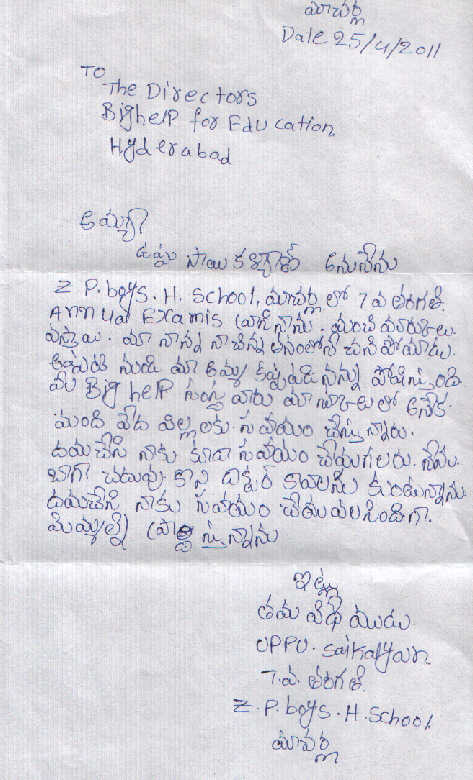 మాచర్ల
Date 25/4/2011
TO
The Directors
Bighelp for Education
Hyderabad
అమ్మా
ఉప్పు సాయి కళ్యాణ్ అనునేను
Z P. boys. H. School, మాచర్ల లో 7 వ తరగతి.
Annual Examis వ్రాసినాను. మంచి మార్కులు
వస్తాయి. మా నాన్న నా చిన్న తనంలోనే చనిపోయాడు.
అప్పటి నుండి మా అమ్మ కష్టపడి నన్ను పోషిస్తుంది
మీ Big help సంస్థ వారు మా స్కూలులో అనేక
మంది పేద పిల్లలకు సహాయం చేస్తున్నారు.
దయచేసి నాకు కూడా సహాయం చేయగలరు. నేను
బాగా చదువు కొని డాక్టర్ కావాలను కుంటున్నాను
దయచేసి నాకు సహాయం చేయవలసిందిగా
మిమ్మల్ని ప్రార్ధిస్తున్నాను
ఇట్లు
తమ విధేయుడు
UPPU. Saikalyan
7.వ. తరగతి.
Z. P. boys. H. School
మాచర్ల